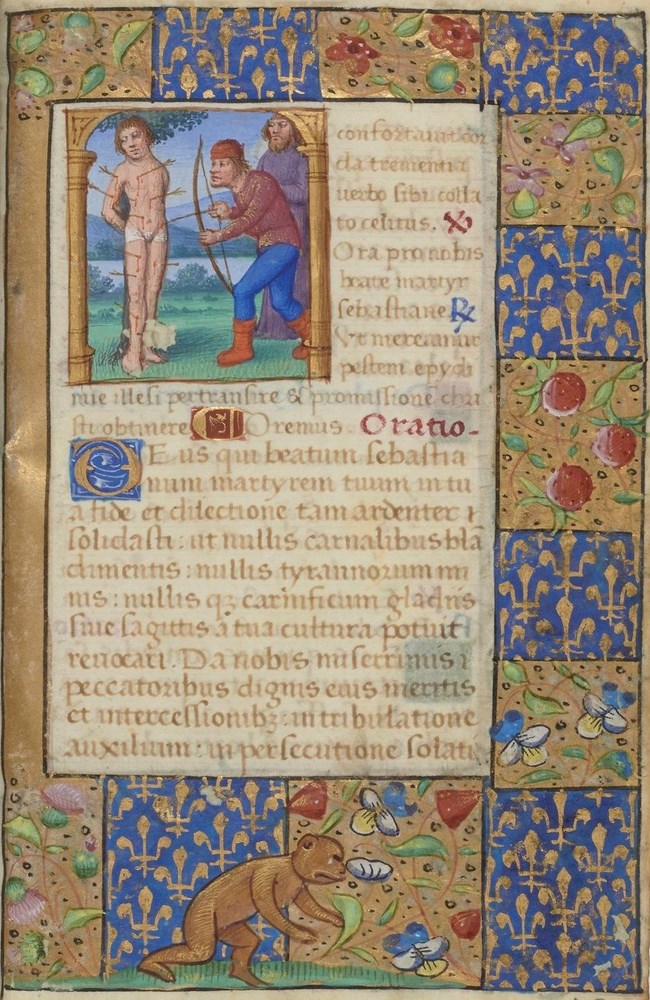 confortavit cor
da trementia
uerbo sibi colla
to celitus. ℣
Ora pro nobis
beate martyr
sebastiane ℟
Vt mereamur
pestem epydi
mie illesi pertransire & promissionē chri
sti obtinere Oremus. Oratio.
DEus qui beatum sebastia
num martyrem tuum in tu
a fide et dilectione tam ardenter
solidasti: ut nullis carnalibus blā
dimentis: nullis tyrannorum mi
nis: nullis qꝫ carnificum gladiis
siue sagittis a tua cultura potuit
reuocari. Da nobis miserrimis
peccatoribus dignis eius meritis
et intercessionibꝫ: in tribulatione
auxilium: in persecutione solati